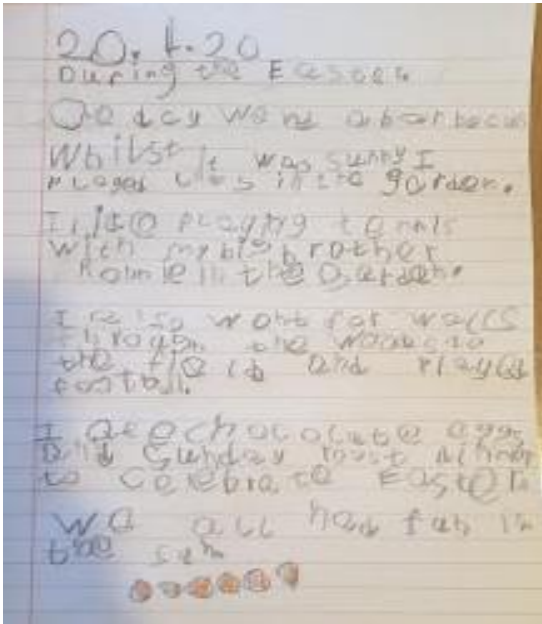 20.4.20
During the Easter.
One day we had a barbecue
Whilst it was sunny I
played in the garden.
I like playing tennis
with my big brother
in the Garden.
I also went for walks
through the woods to
the field and played
football.
I ate chocolate eggs
and Sunday roast dinner
to celebrate Easter.
We all had fun in
the sun